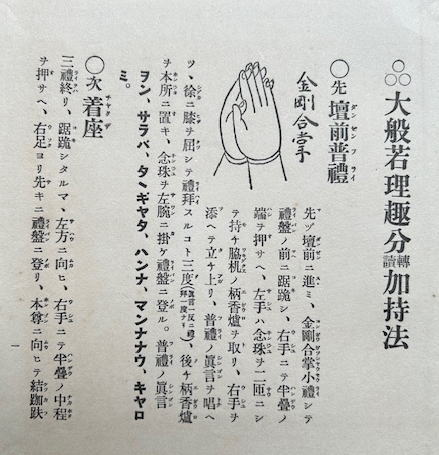 大般若理趣分轉讀加持法
○先 壇前普禮
金剛合掌
先ヅ壇前ニ進ミ、金剛合掌小禮シテ
禮盤ノ前ニ踞跪シ、右手ニテ半疊ノ
端ヲ押サヘ、左手ハ念珠ヲ二匝ニシ
テ持チ脇机ノ柄香爐ヲ取リ、右手ヲ
添ヘテ立チ上リ、普禮ノ眞言ヲ唱ヘ
ツヽ、徐ニ膝ヲ屈シテ禮拜スルコト三度(眞言一反ニ禮拜一度ナリ)、後チ柄香爐
ヲ本所ニ置キ、念珠ヲ左腕ニ掛ケ禮盤ニ登ル。普禮ノ眞言
ヲン、サラバ、タヽギャタ、ハンナ、マンナナウ、キャロ
ミ。
○次 着座
三禮終リ、踞跪シタルマヽ左方ニ向ヒ、右手ニテ半疊ノ中程
ヲ押サヘ、右足ヨリ先キニ禮盤ニ登リ、本尊ニ向ヒテ結跏趺
一